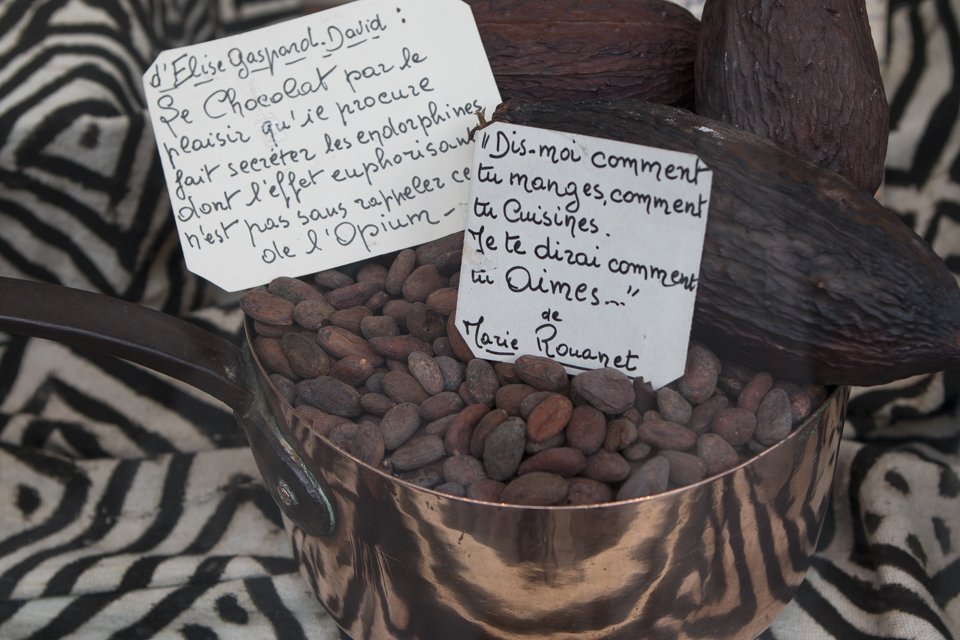 d'Elise Gaspard.David :
Le Chocolat par le
plaisir qu'ie procure
fait secréter les endorphines
dont l'effet euphorisant
n'est pas sans rappeler ce
de l'Opium -
"Dis-moi comment
tu manges, comment
tu Cuisines.
Je te dirai comment
tu Aimes..."
de
Marie Rouanet